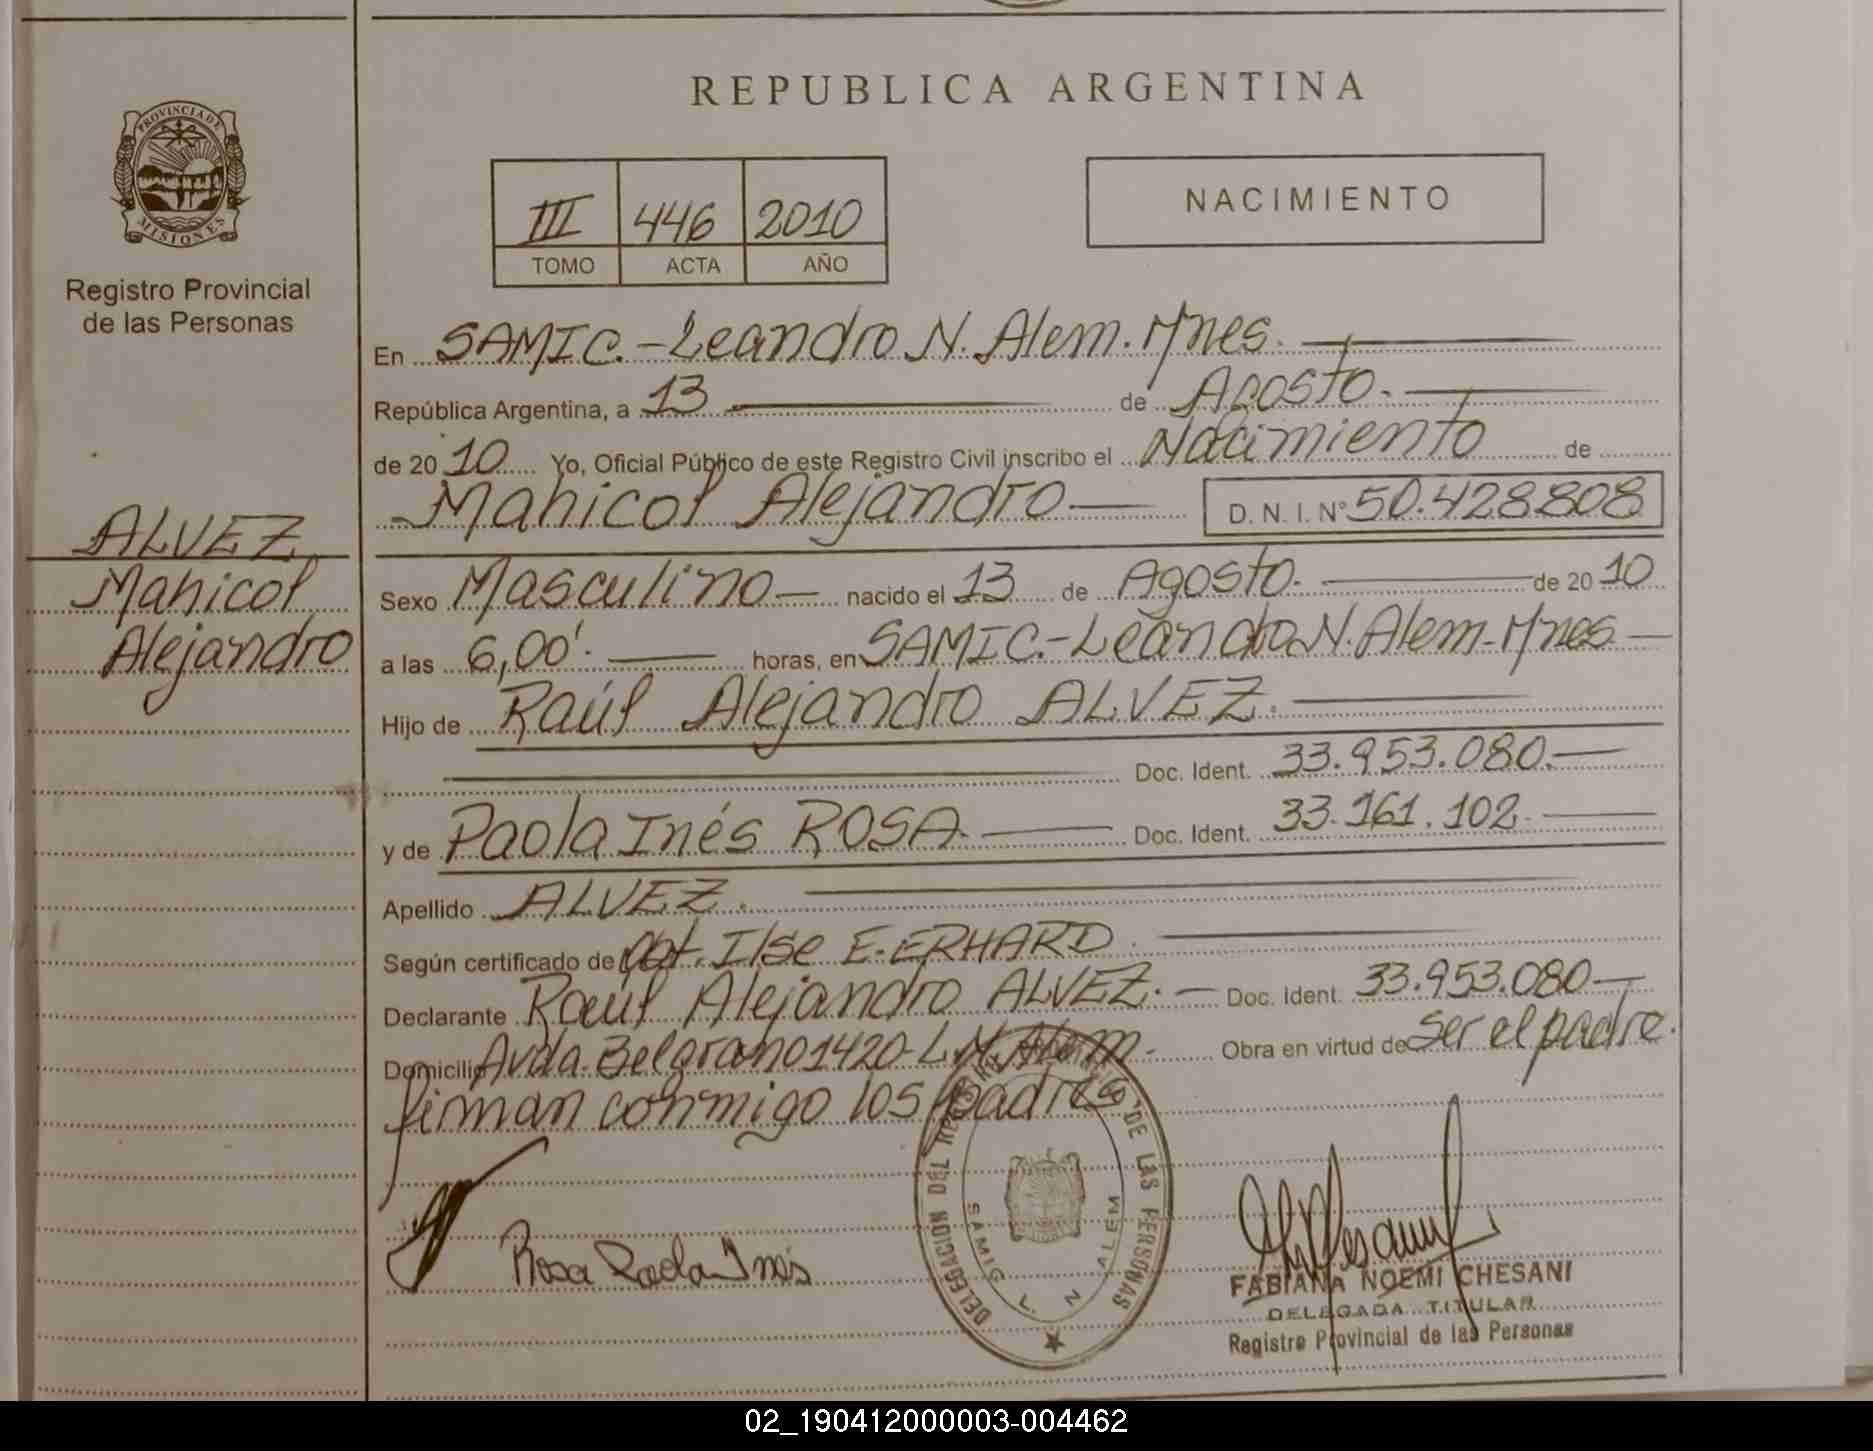 REPUBLICA ARGENTINA
PROVINCIA DE
MISIONES
Registro Provincial
de las Personas
III 446 2010
TOMO ACTA AÑO
NACIMIENTO
ALVEZ
Mahicol
Alejandro
En SAMIC.-Leandro N. Alem. Mnes.
República Argentina, a 13 de Agosto.
de 2010 Yo, Oficial Público de este Registro Civil inscribo el Nacimiento de
Mahicol Alejandro D. N. I. N° 50.428.808
Sexo Masculino nacido el 13 de Agosto. de 2010
a las 6,00'. horas, en SAMIC.-Leandro N. Alem-Mnes
Hijo de Raúl Alejandro ALVEZ.
Doc. Ident. 33.953.080.
y de Paola Inés ROSA. Doc. Ident. 33.161.102.
Apellido ALVEZ.
Según certificado de Obst. Ilse E. ERHARD.
Declarante Raúl Alejandro ALVEZ. Doc. Ident. 33.953.080
Domicilio Avda. Belgrano 1420-L.N. Alem. Obra en virtud de Ser el padre.
firman conmigo los padres
Rosa Paola Inés
DELEGACION DEL REGISTRO PROVINCIAL DE LAS PERSONAS
SAMIC L. N ALEM
FABIANA NOEMI CHESANI
DELEGADA TITULAR
Registro Provincial de las Personas
02_190412000003-004462